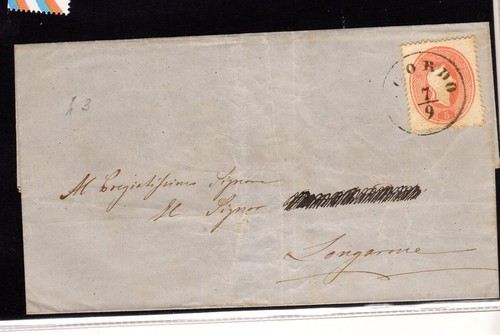 CORDO
7/9
5
Al Pregiatissimo Signore
Il Signor
Longarone